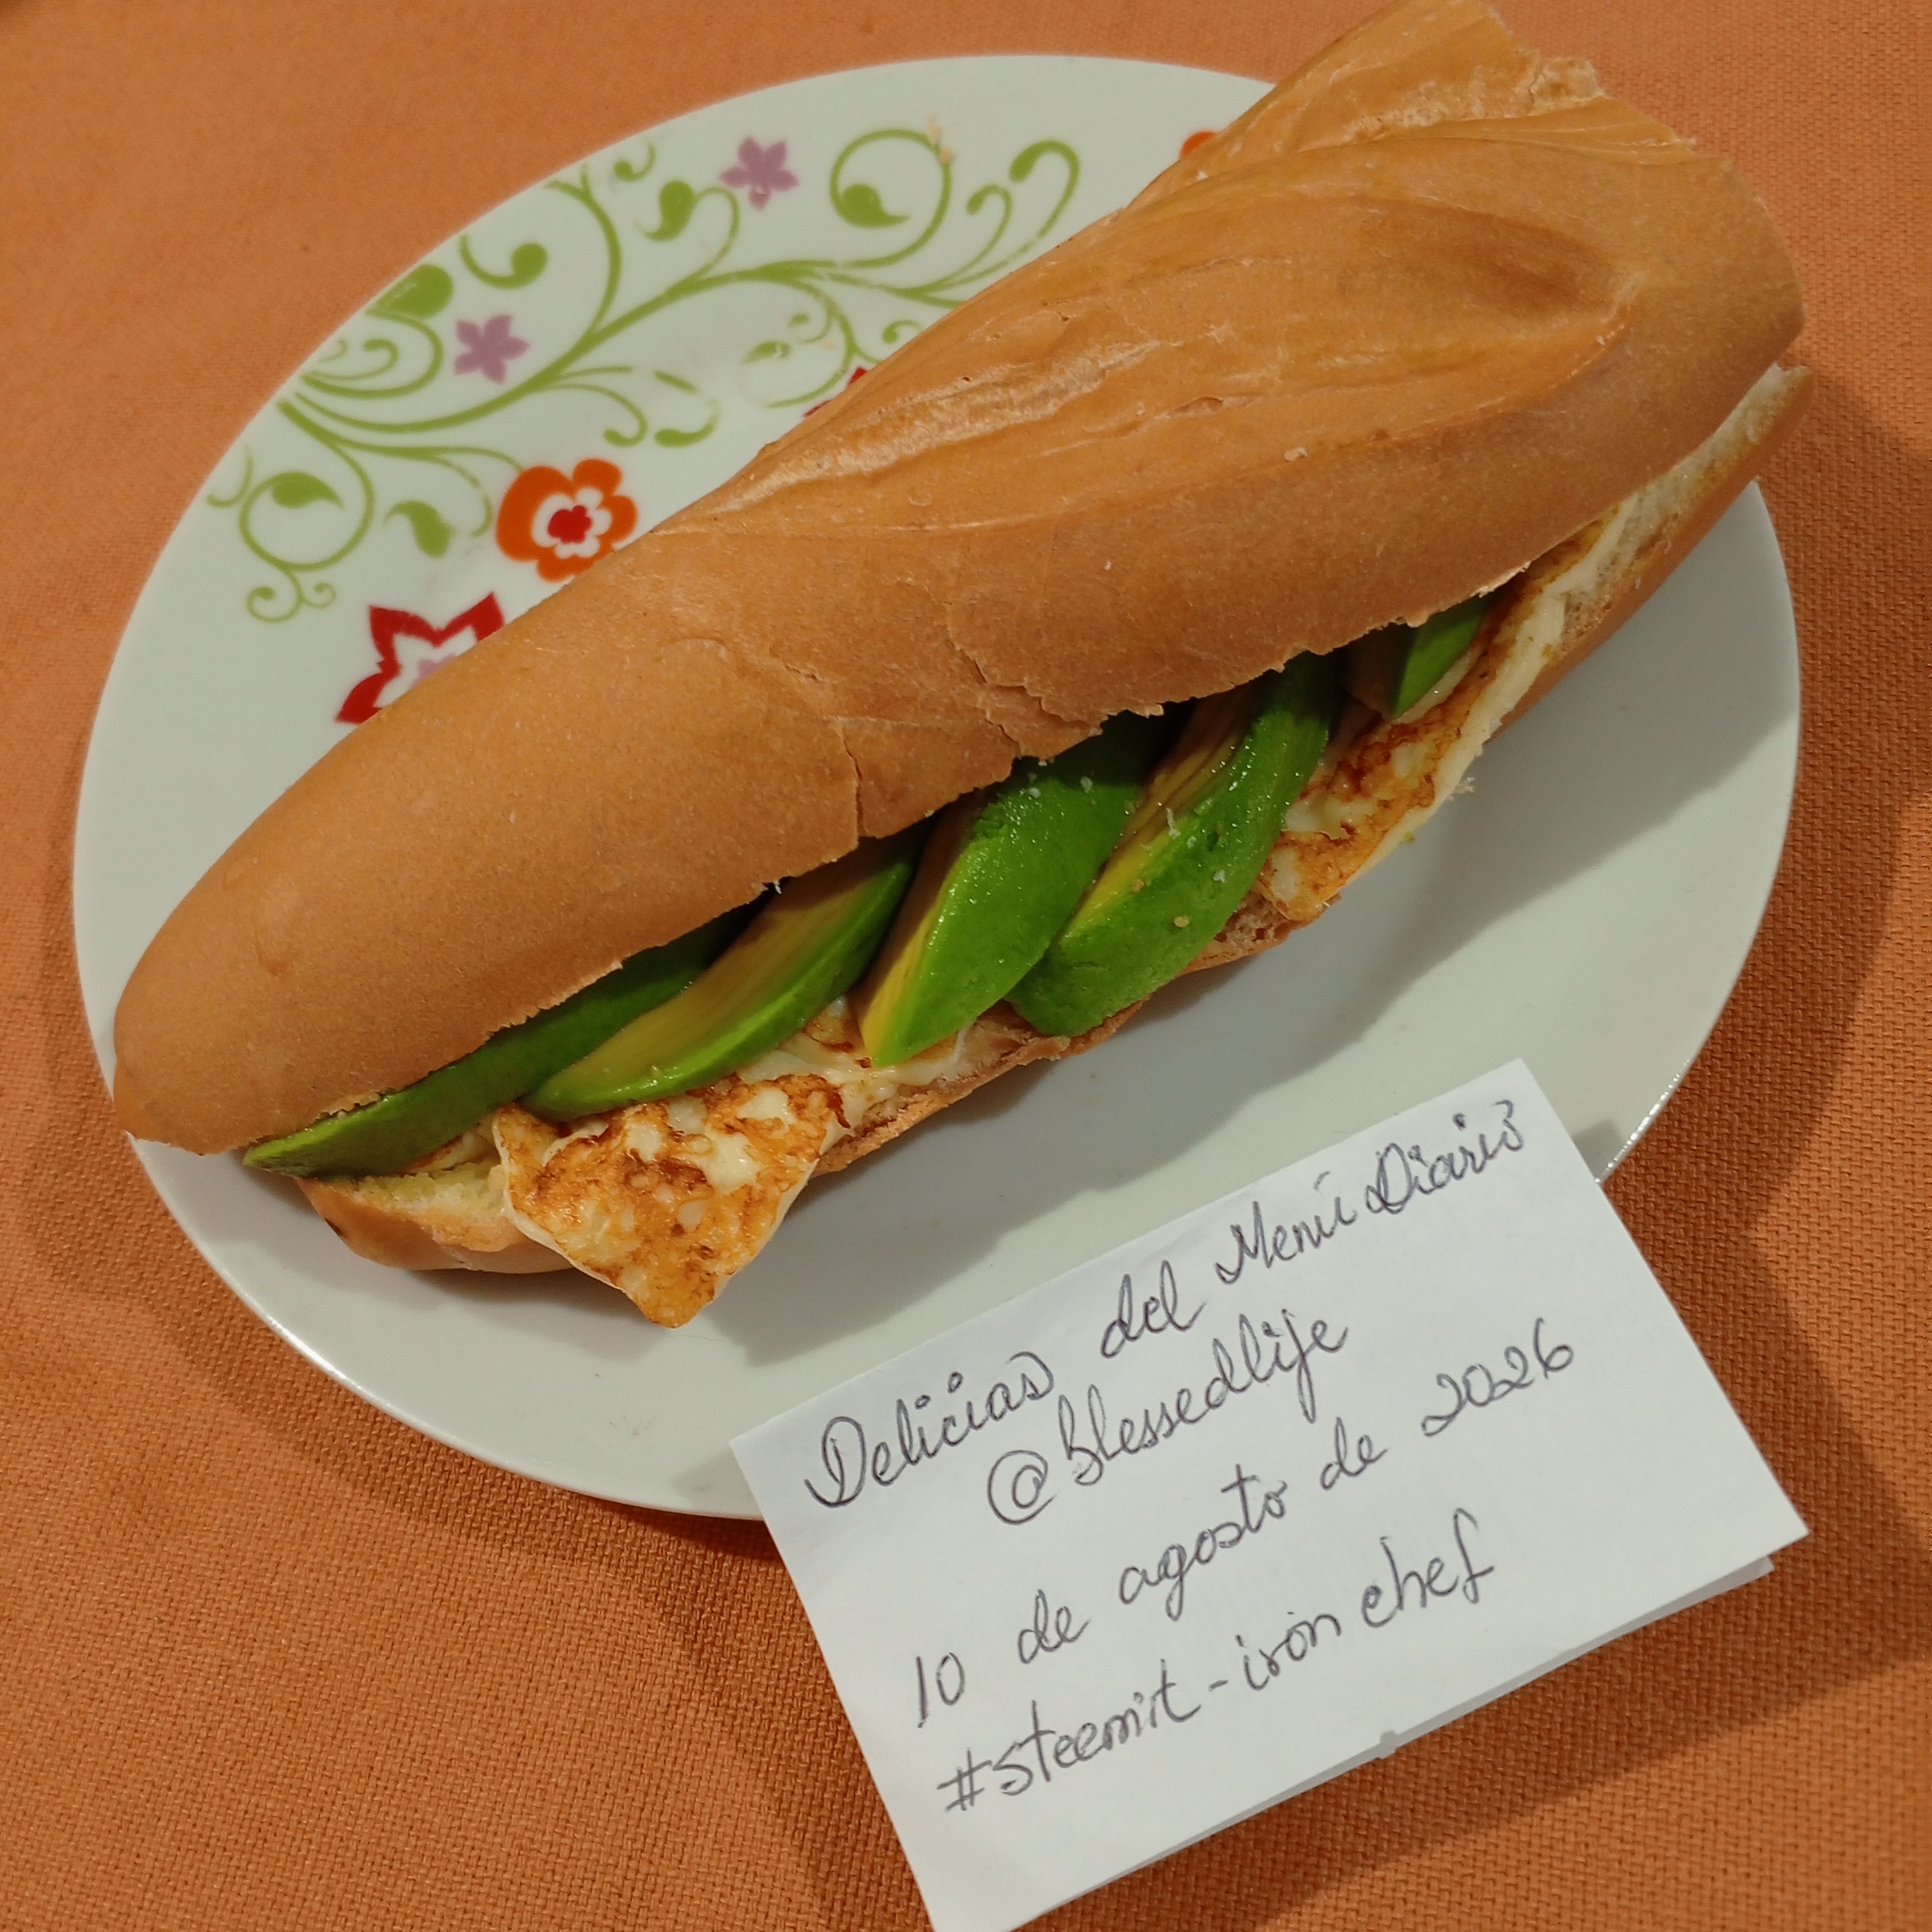 Delicias del Menú Diario
@blessedlife
10 de agosto de 2026
#steemit-iron chef